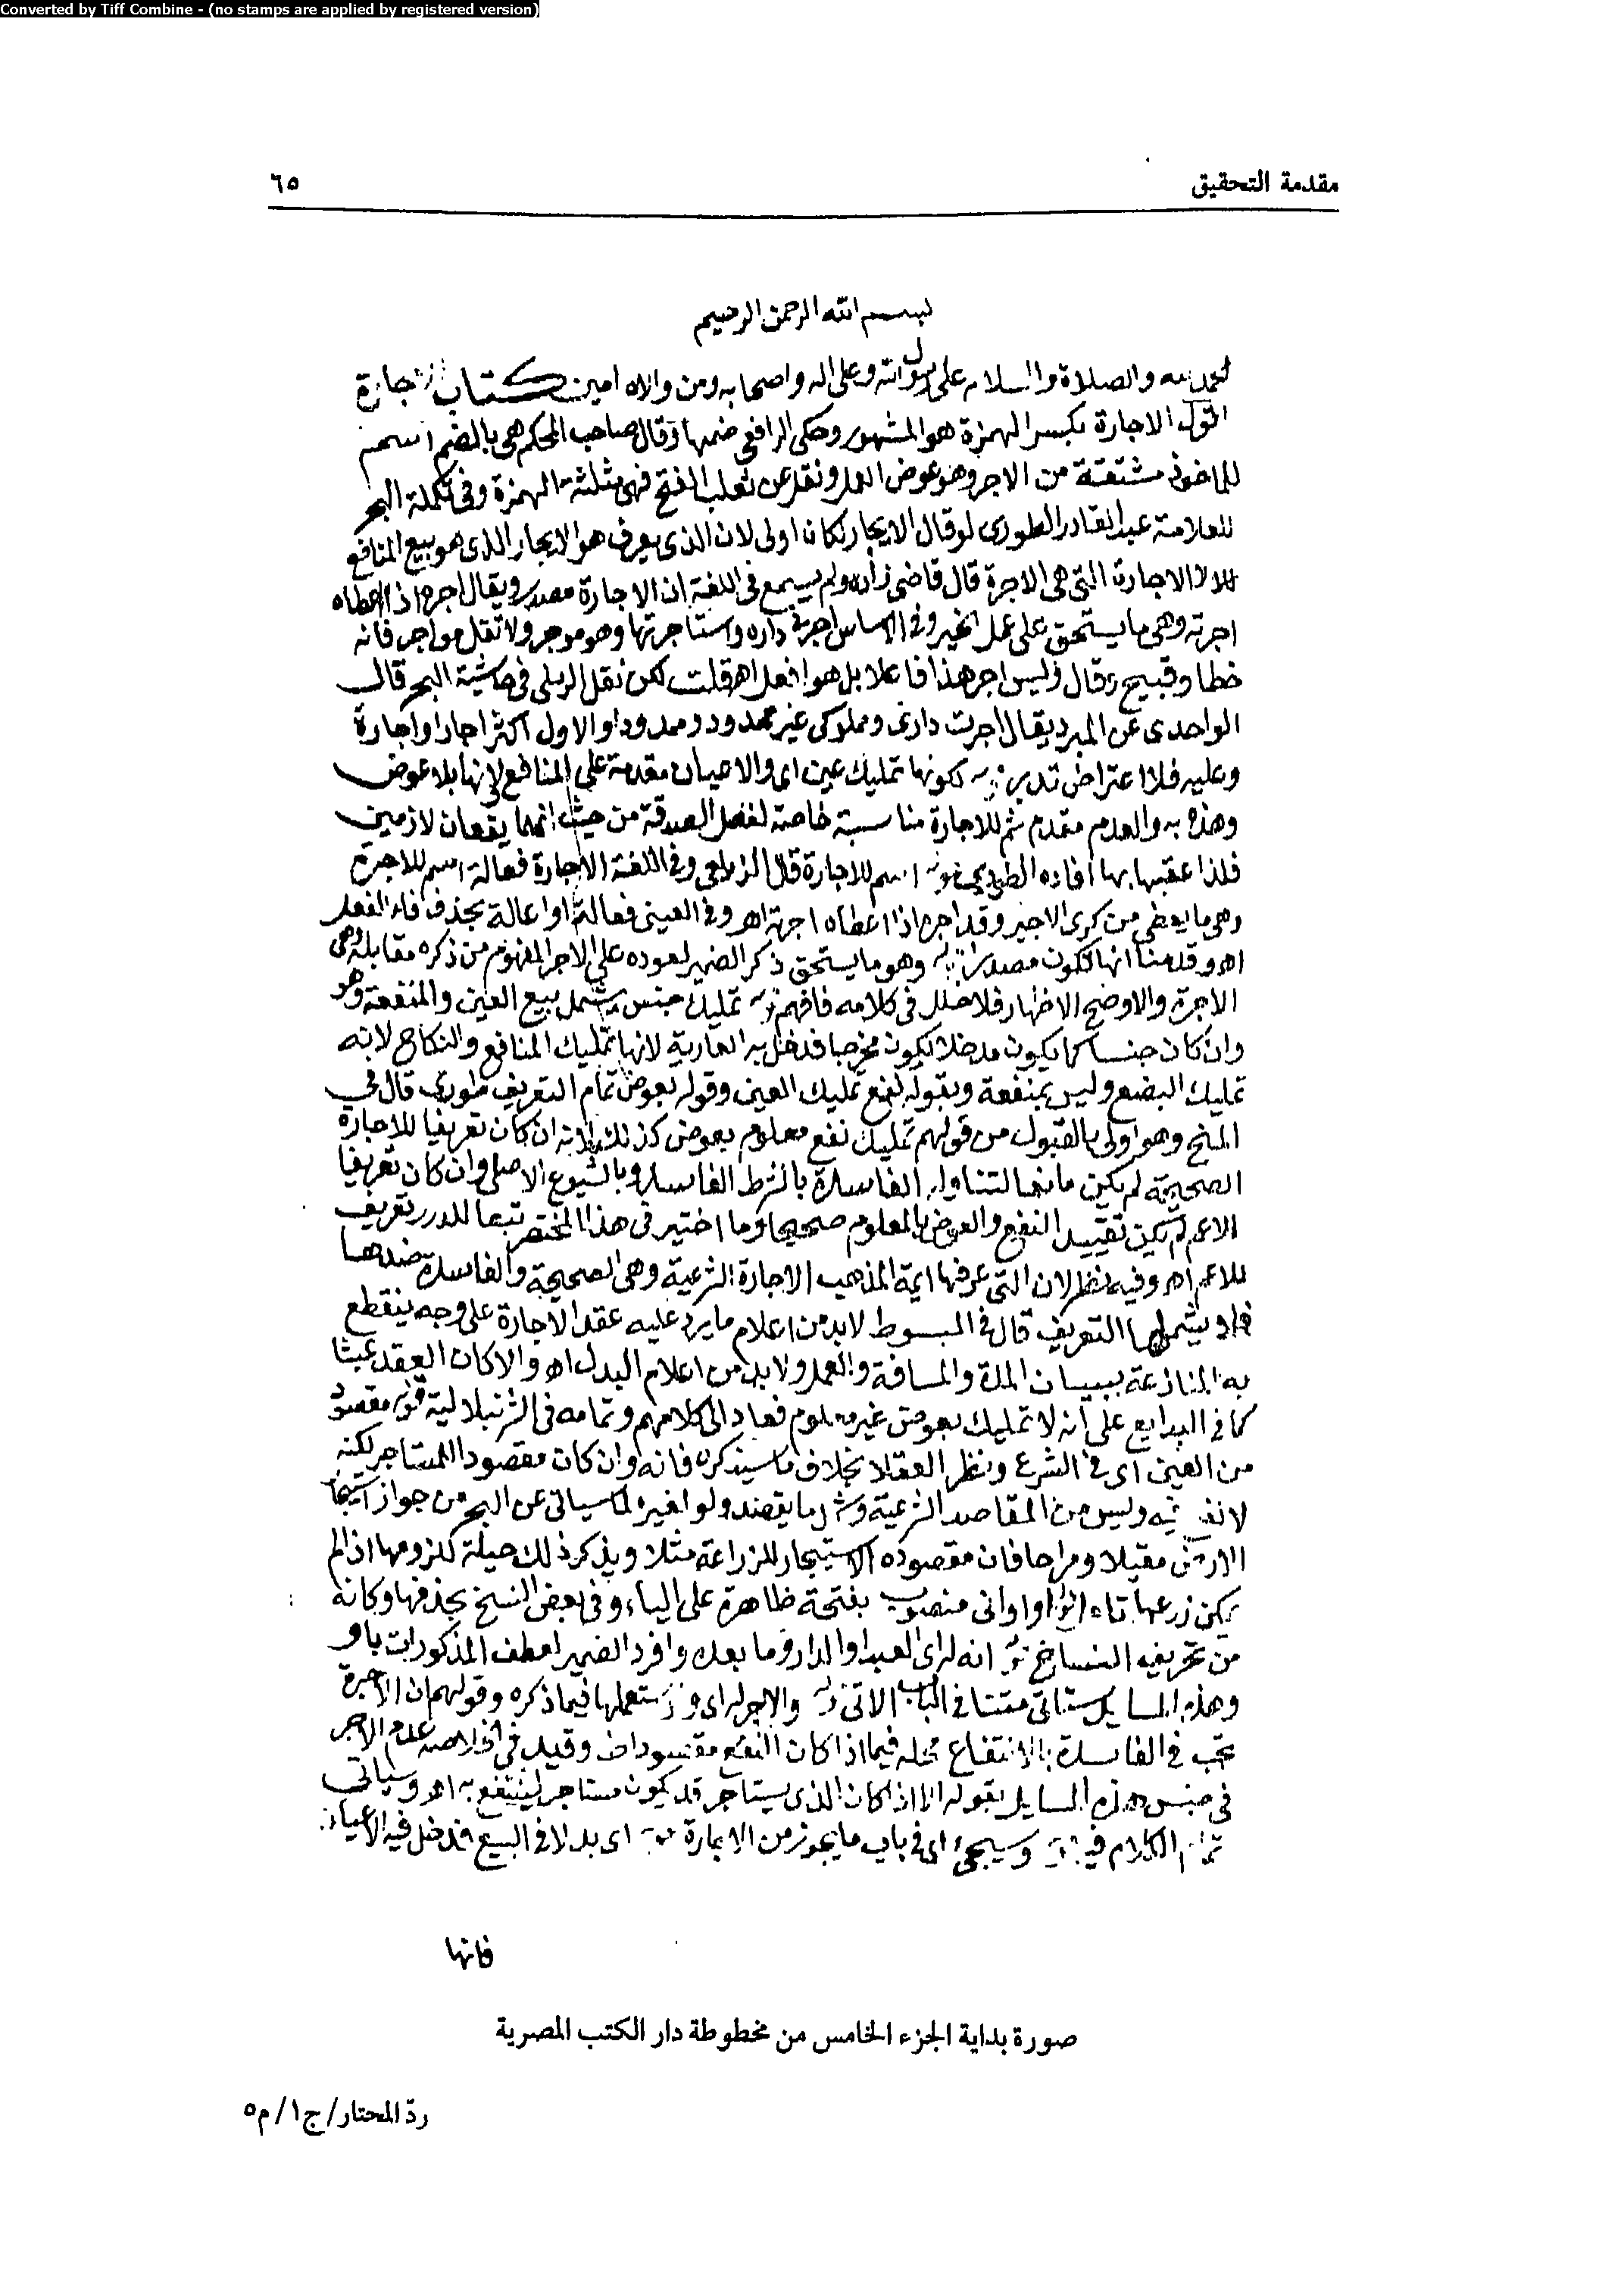 Converted by Tiff Combine - (no stamps are applied by registered version)
مقدمة التحقيق ٦٥
بسم الله الرحمن الرحيم
الحمد لله والصلاة والسلام على رسول الله وعلى اله واصحابه ومن والاه امين كتاب الاجارة
الاجارة بكسر الهمزة هو المشهور وحكى الرافعى ضمها وقال صاحب المحكم هى بالضم اسم
للماخوذ مشتقة من الاجر وهو عوض العمل ونقل عن ثعلب الفتح فهى مثلثة الهمزة وفى تكملة البحر
للعلامة عبد القادر الطورى لو قال الايجار لكان اولى لان الذى يعرف هو الايجار الذى هو بيع المنافع
لا الاجارة التى هى الاجرة قال قاضى زاده ولم يسمع فى اللغة ان الاجارة مصدر ويقال اجره اذا اعطاه
اجرته وهى ما يستحق على عمل الخير وفى الاساس اجرنى داره واستاجرتها وهو موجر ولا تقل مواجر فانه
خطا وقبيح وقال وليس اجر هذا فاعلا بل هو افعل اه قلت لكن نقل الرملى فى حاشية البحر قال
الواحدى عن المبرد يقال اجرت دارى ومملوكى غير ممدود وممدودا والاول اكثر اجارا واجارة
وعليه فلا اعتراض تدبر لكونها تمليك عين اى والاعيان مقدمة على المنافع لانها بلا عوض
وهذه به والعدم مقدم ثم للاجارة مناسبة خاصة لفصل الصدقة من حيث انهما يقعان لازمين
فلذا عقبها بها افاده الطورى اسم للاجارة قال الزيلعى وفى اللغة الاجارة فعالة اسم للاجرة
وهى ما يعطى من كرى الاجير وقد اجره اذا اعطاه اجرته اه وفى العينى فعالة او اعالة بحذف فاء الفعل
اه وقدمنا انها تكون مصدرا وهو ما يستحق ذكر الضمير لعوده على الاجر المفهوم من ذكره مقابله وهى
الاجرة والاوضح الاظهار فلا خلل فى كلامه فافهم تمليك جنس يشمل بيع العين والمنفعة وهو
وان كان جنسا كما يكون مدخلا يكون مخرجا فدخل به العارية لانها تمليك المنافع والنكاح لانه
تمليك البضع وليس بمنفعة وبقوله نفع تمليك العين وقوله بعوض تمام التعريف طورى قال فى
المنح وهو اولى بالقبول من قولهم تمليك نفع معلوم بعوض كذلك لانه ان كان تعريفا للاجارة
الصحيحة لم يكن مانعا لتناوله الفاسدة بالشرط الفاسد وبالشيوع الاصلى وان كان تعريفا
للاعم لم يكن تقييد النفع والعوض بالمعلوم صحيحا وما اختير فى هذا المختصر تبعا للدرر تعريف
للاعم اه وفيه نظر لان التى عرفها ايمة المذهب الاجارة الشرعية وهى الصحيحة والفاسدة ضدها
فلا يشملها التعريف قال فى المبسوط لابد من اعلام ما يرد عليه عقد الاجارة على وجه ينقطع
به المنازعة ببيان المدة والمسافة والعمل ولابد من اعلام البدل اه والا كان العقد عبثا
كما فى البدايع على انه لا تمليك بعوض غير معلوم فعاد الى كلامهم وتمامه فى الشرنبلالية قوله مقصود
من العين اى فى الشرع ونظر العقلا بخلاف ما سيذكره فانه وان كان مقصودا للمستاجر لكنه
لا نفع فيه وليس من المقاصد الشرعية وشمل ما يقصد ولو لغيره لما سياتى عن البحر من جواز استيجار
الارض مقيلا ومراحا فان مقصوده الاستيجار للزراعة مثلا ويذكر ذلك حيلة للزومها اذا لم
يكن زرعها او اوانى منصوب بفتحة ظاهرة على الياء وفى بعض النسخ بحذفها وكانه
من تحريف النساخ انه له اى العبد او الدار وما بعده وافرد الضمير لعطف المذكورات باو
وهذه المسايل ستاتى متنا فى الباب الاتى ولا اجر له اى ولو استعملها فيما ذكره وقولهم ان الاجرة
تجب فى الفاسدة بالانتفاع محله فيما اذا كان النفع مقصودا وقيد فى الخلاصه عدم الاجر
فى جنس هذه المسايل بقوله الا اذا كان الذى يستاجر قد يكون مستاجر لينتفع به اه وسياتى
تمام الكلام فيه وسيجى اى فى باب ما يجوز من الاجارة اى بدلا فى البيع فدخل فيه الاعيان
فانها
صورة بداية الجزء الخامس من مخطوطة دار الكتب المصرية
ردّ المحتار/ ج١/ م٥